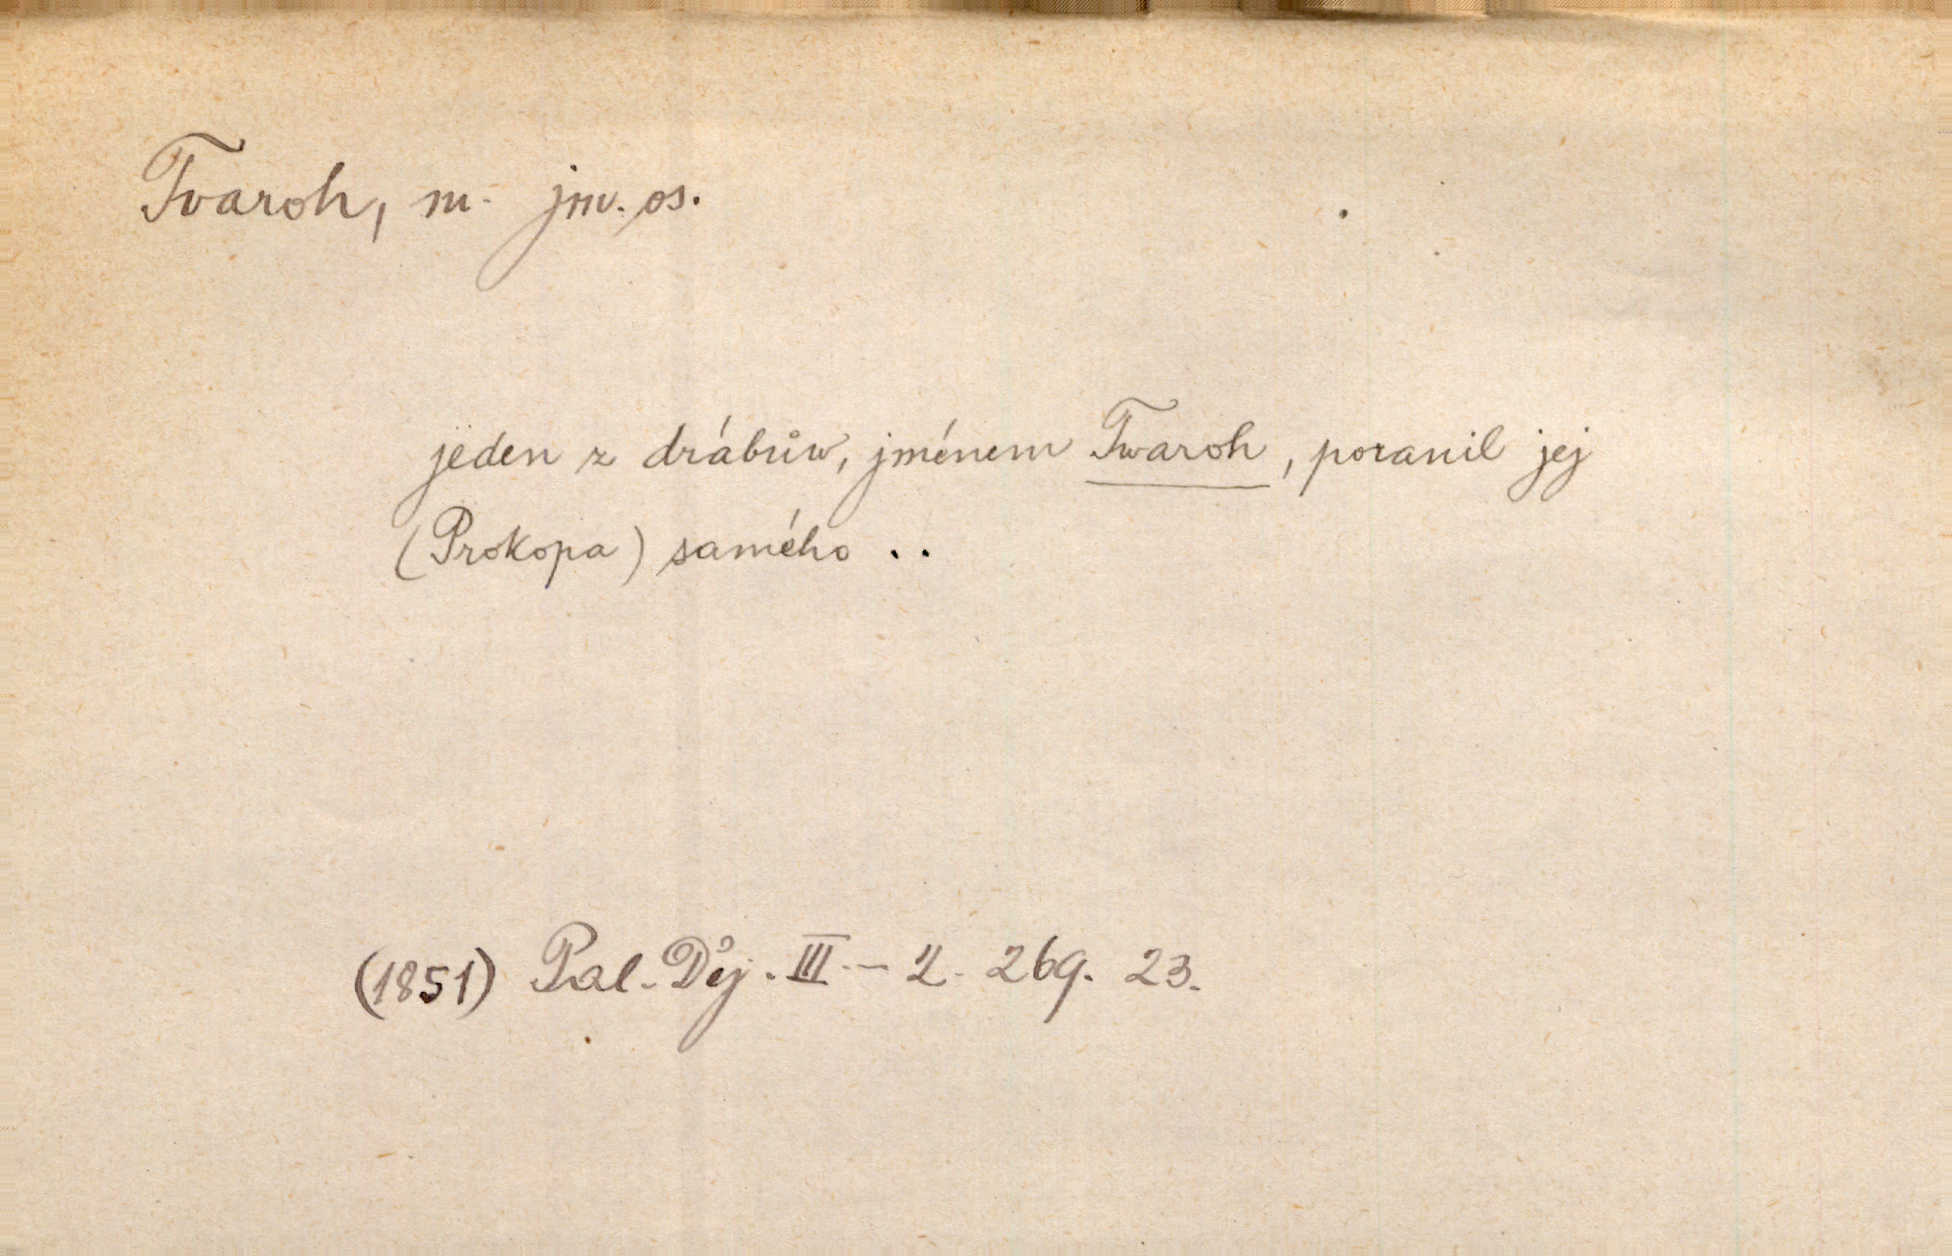 Tvaroh, m. jm. os.
jeden z drábůw, jménem Twaroh, poranil jej
(Prokopa) samého ..
(1851) Pal. Děj. III. - 2. 269. 23.